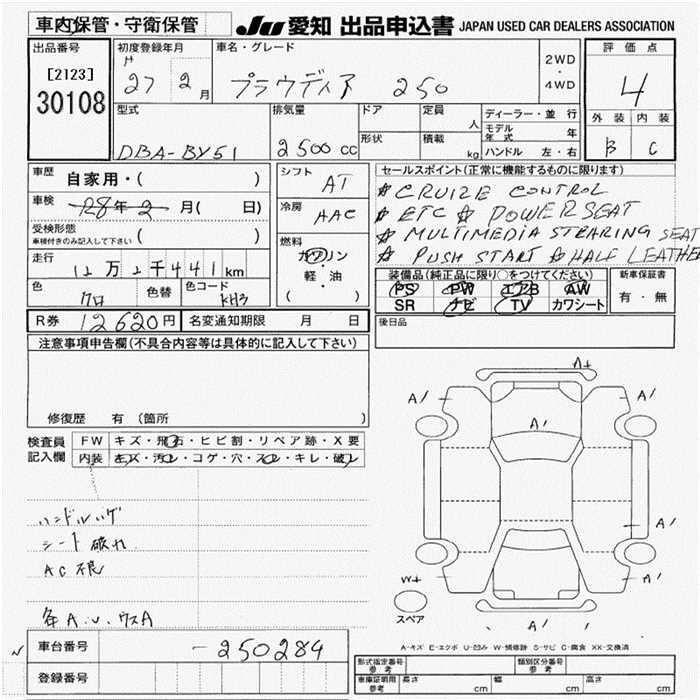 車内保管・守衛保管 JU 愛知 出品申込書 JAPAN USED CAR DEALERS ASSOCIATION
出品番号 初度登録年月 車名・グレード 2WD・4WD 評価点
[2123] 27 2月 プラウディア 250 4
30108 外装 内装
型式 排気量 ドア 定員 人 ディーラー・並行 B C
形状 積載 kg モデル年式 年
DBA-BY51 2500cc ハンドル 左・右
車歴 自家用・( ) シフト AT セールスポイント(正常に機能するものに限ります)
車検 R8年2月( 日) 冷房 AAC ☆CRUIZE CONTROL
☆ETC ☆POWERSEAT
受検形態 ( ) ☆MULTIMEDIA STEARING SEAT
車検付きのみ記入して下さい 燃料 ☆PUSH START ☆HALF LEATHER
走行 12万2千441km ガソリン 装備品(純正品に限り○をつけてください) 新車保証書
色 クロ 色替 色コード KH3 軽・油 PS PW エアB AW 有・無
( ) SR ナビ TV カワシート
R券 12620円 名変通知期限 月 日 後日品
注意事項申告欄(不具合内容等は具体的に記入して下さい)
修復歴 有 (箇所 )
検査員 FW キズ・飛石・ヒビ割・リペア跡・X要
記入欄 内装 キズ・汚レ・コゲ・穴・スレ・キレ・破レ
ハンドルハゲ
シート破れ
AC不良
各A.U.ウスA
車台番号 -250284
登録番号
A+
A1 A1
A1
A1
W+ A1
A1
スペア
A-キズ E-エクボ U-凹み W-補修跡 S-サビ C-腐食 XX-交換済
形式指定番号 参考 類別区分番号 参考
車庫証明用 参考 長さ cm 幅 cm 高さ cm